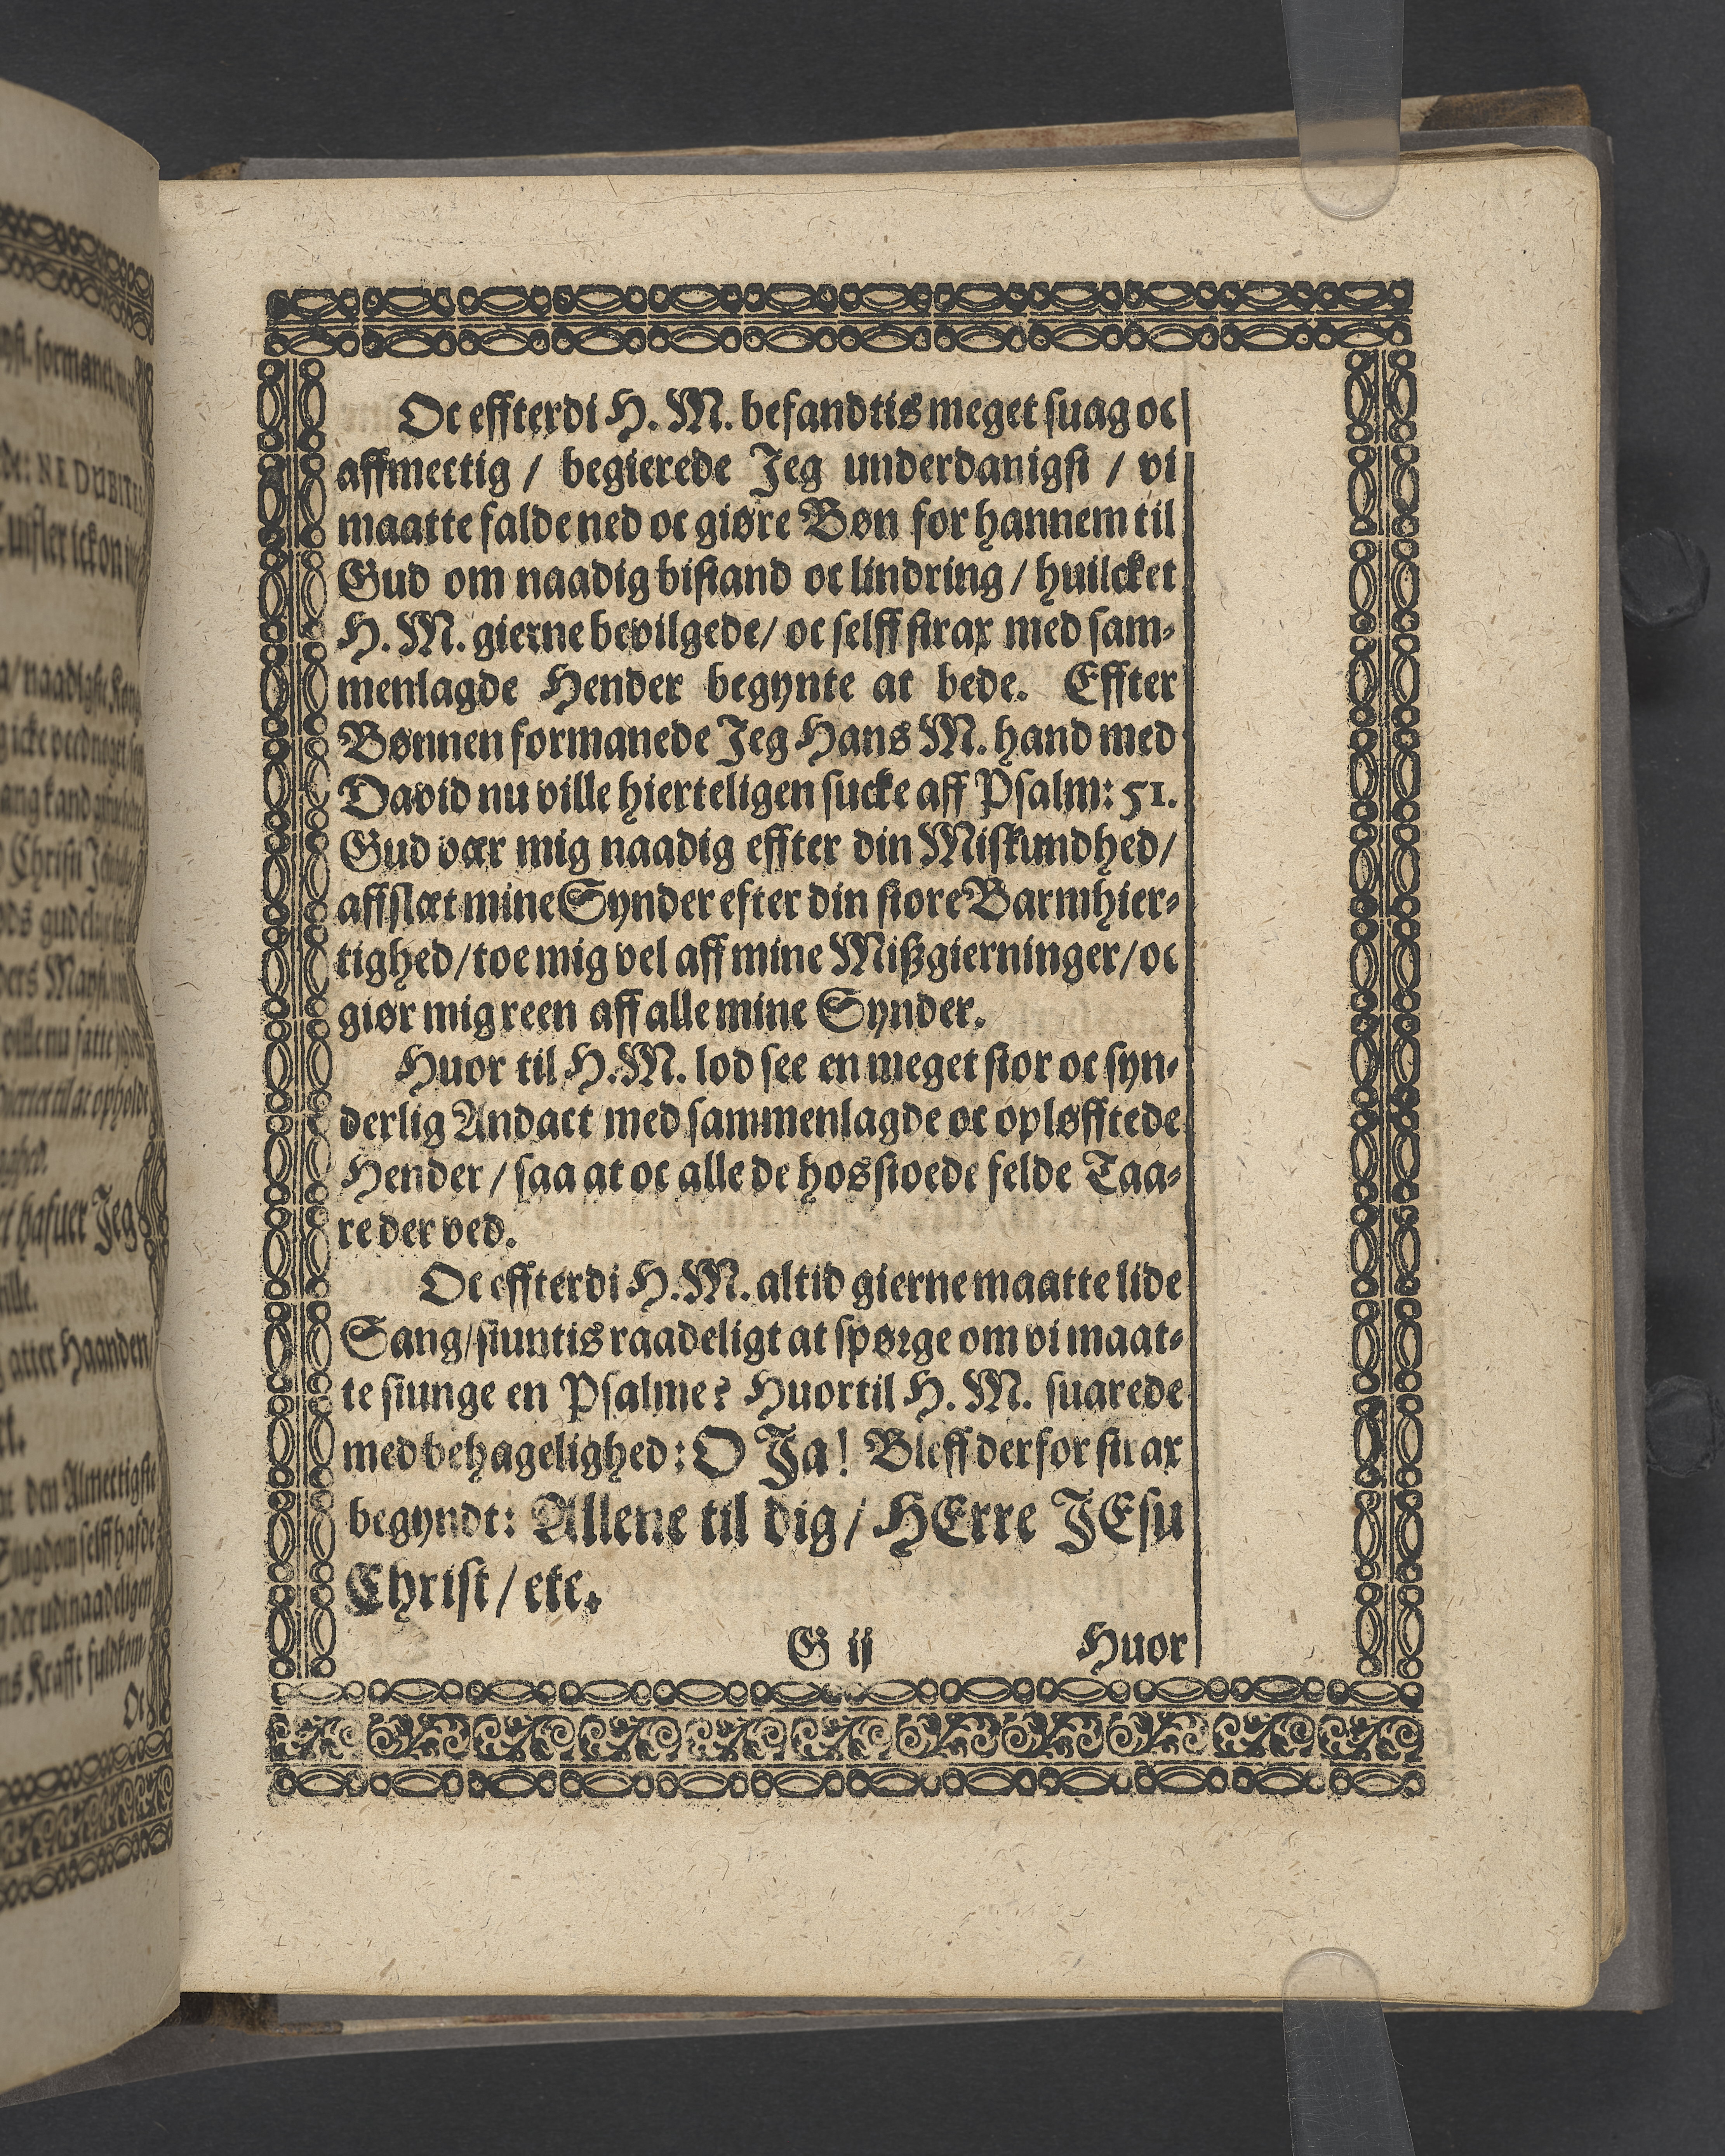 Oc effterdi H. M. befandtis meget suag oc
affmectig / begierede Jeg underdanigst / vi
maatte falde ned oc giøre Bøn for hannem til
Gud om naadig bistand oc lindring / huilcket
H. M. gierne bevilgede / oc selff strax med sam-
menlagde Hender begynte at bede. Effter
Bønnen formanede Jeg Hans M. hand med
David nu ville hierteligen sucke aff Psalm: 51.
Gud vær mig naadig effter din Miskundhed /
affslæt mine Synder efter din store Barmhier-
tighed / toe mig vel aff mine Mißgierninger / oc
giør mig reen aff alle mine Synder.
Huor til H. M. lod see en meget stor oc syn-
derlig Andact med sammenlagde oc opløfftede
Hender / saa at oc alle de hosstoede felde Taa-
re der ved.
Oc effterdi H. M. altid gierne maatte lide
Sang / siuntis raadeligt at spørge om vi maat-
te siunge en Psalme? Huortil H. M. suarede
med behagelighed: O Ja! Bleff derfor strax
begyndt: Allene til dig / HErre JEsu
Christ / etc.
G ij Huor